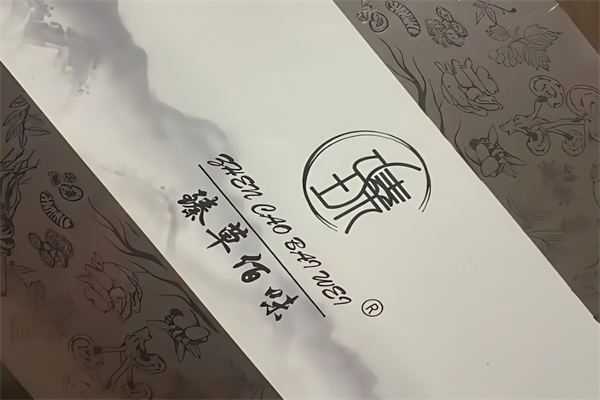 臻
ZHEN CAO BAI WEI
臻草佰味
®